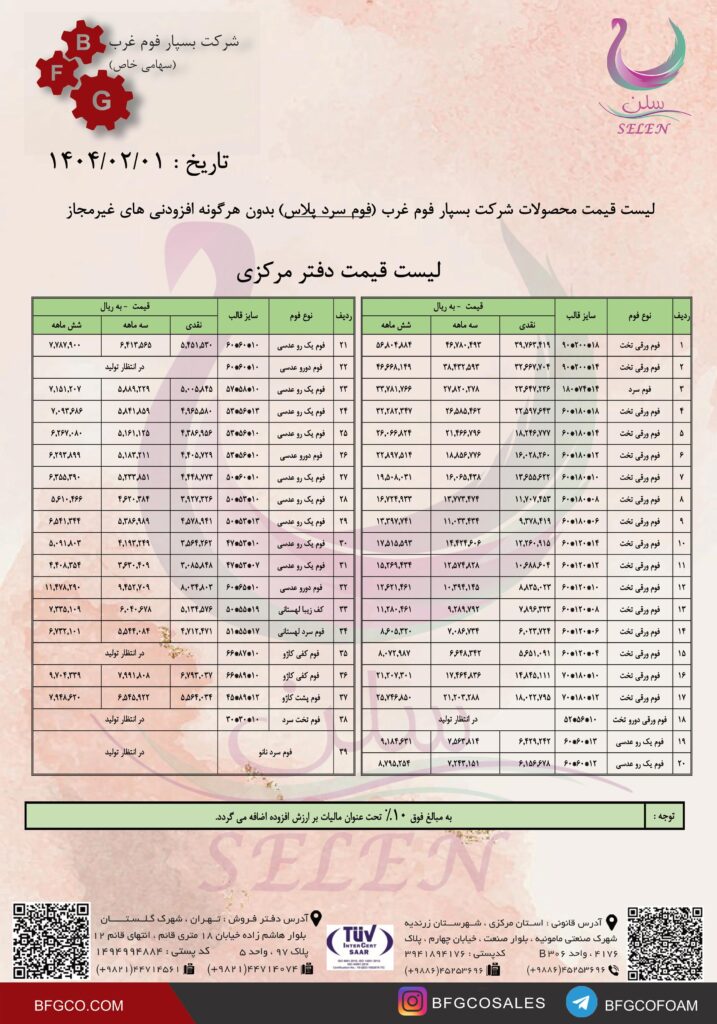 شرکت بسپار فوم غرب
(سهامی خاص)
B
F
G
سلن
SELEN
تاریخ : ۱۴۰۴/۰۲/۰۱
لیست قیمت محصولات شرکت بسپار فوم غرب (فوم سرد پلاس) بدون هرگونه افزودنی های غیرمجاز
لیست قیمت دفتر مرکزی
ردیف نوع فوم سایز قالب قیمت - به ریال
نقدی سه ماهه شش ماهه
۱ فوم ورقی تخت ۹۰*۲۰۰*۱۸ ۳۹,۷۶۳,۴۱۹ ۴۶,۷۸۰,۴۹۳ ۵۶,۸۰۴,۸۸۴
۲ فوم ورقی تخت ۹۰*۲۰۰*۱۴ ۳۲,۶۶۷,۷۰۴ ۳۸,۴۳۲,۵۹۳ ۴۶,۶۶۸,۱۴۹
۳ فوم سرد ۱۸۰*۷۴*۱۴ ۲۳,۶۴۷,۲۳۶ ۲۷,۸۲۰,۲۷۸ ۳۳,۷۸۱,۷۶۶
۴ فوم ورقی تخت ۶۰*۱۸۰*۱۸ ۲۲,۵۹۷,۶۴۳ ۲۶,۵۸۵,۴۶۲ ۳۲,۲۸۲,۳۴۷
۵ فوم ورقی تخت ۶۰*۱۸۰*۱۴ ۱۸,۲۴۶,۷۷۷ ۲۱,۴۶۶,۷۹۶ ۲۶,۰۶۶,۸۲۴
۶ فوم ورقی تخت ۶۰*۱۸۰*۱۲ ۱۶,۰۲۸,۲۶۰ ۱۸,۸۵۶,۷۷۶ ۲۲,۸۹۷,۵۱۴
۷ فوم ورقی تخت ۶۰*۱۸۰*۱۰ ۱۳,۶۵۵,۶۲۲ ۱۶,۰۶۵,۴۳۸ ۱۹,۵۰۸,۰۳۱
۸ فوم ورقی تخت ۶۰*۱۸۰*۰۸ ۱۱,۷۰۷,۴۵۳ ۱۳,۷۷۳,۴۷۴ ۱۶,۷۲۴,۹۳۳
۹ فوم ورقی تخت ۶۰*۱۸۰*۰۶ ۹,۳۷۸,۴۱۹ ۱۱,۰۳۳,۴۳۴ ۱۳,۳۹۷,۷۴۱
۱۰ فوم ورقی تخت ۶۰*۱۲۰*۱۴ ۱۲,۲۶۰,۹۱۵ ۱۴,۴۲۴,۶۰۶ ۱۷,۵۱۵,۵۹۳
۱۱ فوم ورقی تخت ۶۰*۱۲۰*۱۲ ۱۰,۶۸۸,۶۰۴ ۱۲,۵۷۴,۸۲۸ ۱۵,۲۶۹,۴۳۴
۱۲ فوم ورقی تخت ۶۰*۱۲۰*۱۰ ۸,۸۳۵,۰۲۳ ۱۰,۳۹۴,۱۴۵ ۱۲,۶۲۱,۴۶۱
۱۳ فوم ورقی تخت ۶۰*۱۲۰*۰۸ ۷,۸۹۶,۳۲۳ ۹,۲۸۹,۷۹۲ ۱۱,۲۸۰,۴۶۱
۱۴ فوم ورقی تخت ۶۰*۱۲۰*۰۶ ۶,۰۲۳,۷۲۴ ۷,۰۸۶,۷۳۴ ۸,۶۰۵,۳۲۰
۱۵ فوم ورقی تخت ۶۰*۱۲۰*۰۴ ۵,۶۵۱,۰۹۱ ۶,۶۴۸,۳۴۲ ۸,۰۷۲,۹۸۷
۱۶ فوم ورقی تخت ۷۰*۱۸۰*۱۰ ۱۴,۸۴۵,۱۱۱ ۱۷,۴۶۴,۸۳۶ ۲۱,۲۰۷,۳۰۱
۱۷ فوم ورقی تخت ۷۰*۱۸۰*۱۲ ۱۸,۰۲۲,۷۹۵ ۲۱,۲۰۳,۲۸۸ ۲۵,۷۴۶,۸۵۰
۱۸ فوم ورقی دورو تخت ۵۲*۵۶*۱۰ در انتظار تولید
۱۹ فوم یک رو عدسی ۶۰*۶۰*۱۳ ۶,۴۲۹,۲۴۲ ۷,۵۶۳,۸۱۴ ۹,۱۸۴,۶۳۱
۲۰ فوم یک رو عدسی ۶۰*۶۰*۱۲ ۶,۱۵۶,۶۷۸ ۷,۲۴۳,۱۵۱ ۸,۷۹۵,۲۵۴
ردیف نوع فوم سایز قالب قیمت - به ریال
نقدی سه ماهه شش ماهه
۲۱ فوم یک رو عدسی ۶۰*۶۰*۱۰ ۵,۴۵۱,۵۳۰ ۶,۴۱۳,۵۶۵ ۷,۷۸۷,۹۰۰
۲۲ فوم دورو عدسی ۶۰*۶۰*۱۰ در انتظار تولید
۲۳ فوم یک رو عدسی ۵۷*۵۸*۱۰ ۵,۰۰۵,۸۴۵ ۵,۸۸۹,۲۲۹ ۷,۱۵۱,۲۰۷
۲۴ فوم یک رو عدسی ۵۳*۵۶*۱۳ ۴,۹۶۵,۵۸۰ ۵,۸۴۱,۸۵۹ ۷,۰۹۳,۶۸۶
۲۵ فوم یک رو عدسی ۵۳*۵۶*۱۰ ۴,۳۸۶,۹۵۶ ۵,۱۶۱,۱۲۵ ۶,۲۶۷,۰۸۰
۲۶ فوم دورو عدسی ۵۳*۵۶*۱۰ ۴,۴۰۵,۷۲۹ ۵,۱۸۳,۲۱۱ ۶,۲۹۳,۸۹۹
۲۷ فوم یک رو عدسی ۵۰*۶۰*۱۰ ۴,۴۴۸,۷۷۳ ۵,۲۳۳,۸۵۱ ۶,۳۵۵,۳۹۰
۲۸ فوم یک رو عدسی ۵۰*۵۳*۱۰ ۳,۹۲۷,۳۲۶ ۴,۶۲۰,۳۸۴ ۵,۶۱۰,۴۶۶
۲۹ فوم یک رو عدسی ۵۰*۵۳*۱۳ ۴,۵۷۸,۹۴۱ ۵,۳۸۶,۹۸۹ ۶,۵۴۱,۳۴۴
۳۰ فوم یک رو عدسی ۴۷*۵۳*۱۰ ۳,۵۶۴,۲۶۲ ۴,۱۹۳,۲۴۹ ۵,۰۹۱,۸۰۳
۳۱ فوم یک رو عدسی ۴۷*۵۳*۰۷ ۳,۰۸۵,۸۴۸ ۳,۶۳۰,۴۰۹ ۴,۴۰۸,۳۵۴
۳۲ فوم دورو عدسی ۶۰*۶۵*۱۰ ۸,۰۳۴,۸۰۳ ۹,۴۵۲,۷۰۹ ۱۱,۴۷۸,۲۹۰
۳۳ کف زیبا لهستانی ۵۰*۵۵*۱۹ ۵,۱۳۴,۵۷۶ ۶,۰۴۰,۶۷۸ ۷,۳۳۵,۱۰۹
۳۴ فوم سرد لهستانی ۵۱*۵۵*۱۷ ۴,۷۱۲,۴۷۱ ۵,۵۴۴,۰۸۴ ۶,۷۳۲,۱۰۱
۳۵ فوم کفی کاژو ۶۶*۸۷*۱۰ در انتظار تولید
۳۶ فوم کفی کاژو ۶۶*۸۹*۱۰ ۶,۷۹۳,۰۳۷ ۷,۹۹۱,۸۰۸ ۹,۷۰۴,۳۳۹
۳۷ فوم پشت کاژو ۴۵*۸۹*۱۲ ۵,۵۶۴,۰۳۴ ۶,۵۴۵,۹۲۲ ۷,۹۴۸,۶۲۰
۳۸ فوم تخت سرد ۳۰*۳۰*۱۰ در انتظار تولید
۳۹ فوم سرد نانو در انتظار تولید
توجه : به مبالغ فوق ۱۰٪ تحت عنوان مالیات بر ارزش افزوده اضافه می گردد.
SELEN
آدرس قانونی : استان مرکزی ، شهرستان زرندیه
شهرک صنعتی مامونیه ، بلوار صنعت ، خیابان چهارم ، پلاک
۴۱۷۶ ، واحد B ۳۰۶ کدپستی : ۳۹۴۱۸۹۴۱۷۶
(+۹۸۸۶)۴۵۲۵۳۶۹۶ (+۹۸۸۶)۴۵۲۵۳۶۹۶
TÜV
INTERCERT
SAAR
آدرس دفتر فروش : تهران ، شهرک گلستان
بلوار هاشم زاده خیابان ۱۸ متری قائم ، انتهای قائم ۱۲
پلاک ۹۷ ، واحد ۵ کد پستی : ۱۴۹۴۹۹۴۸۸۴
(+۹۸۲۱)۴۴۷۱۴۰۷۴ (+۹۸۲۱)۴۴۷۱۴۵۶۱
BFGCO.COM
BFGCOSALES
BFGCOFOAM